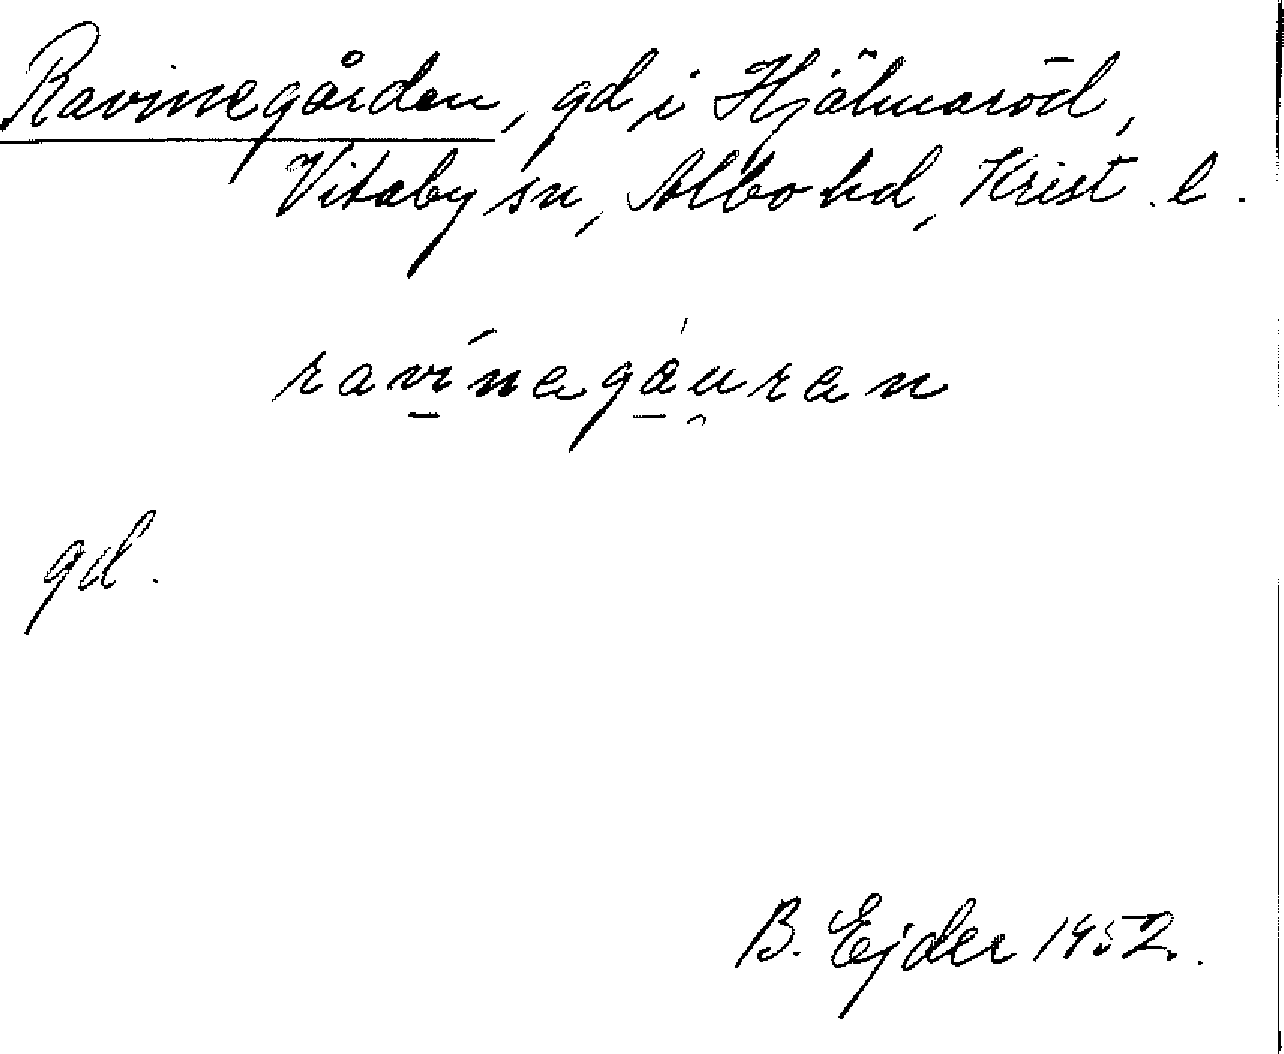 Ravinegården, gd i Hjälmaröd,
Vitaby sn, Albo hd, Krist. l.
ravínagáu̯ran
gd.
B. Ejder 1952.